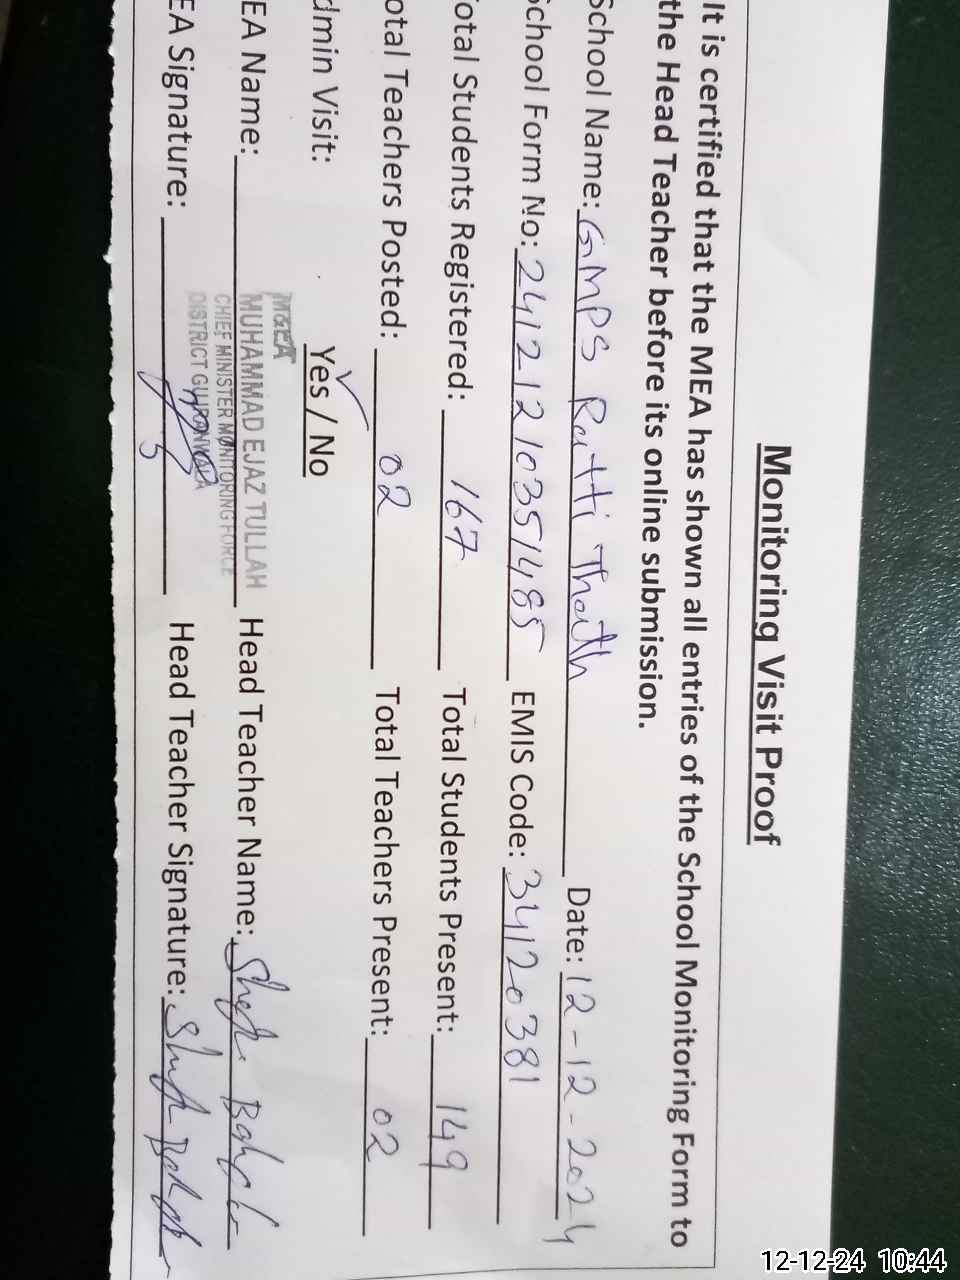 Monitoring Visit Proof
It is certified that the MEA has shown all entries of the School Monitoring Form to
the Head Teacher before its online submission.
School Name: GMPS Ratti Thatth Date: 12-12-2024
School Form No: 24121210351485 EMIS Code: 34120381
Total Students Registered: 167 Total Students Present: 149
otal Teachers Posted: 02 Total Teachers Present: 02
dmin Visit: Yes / No
M&EA
EA Name: MUHAMMAD EJAZ TULLAH Head Teacher Name:
CHIEF MINISTER MONITORING FORCE
DISTRICT GUJRANWALA
EA Signature: Head Teacher Signature:
12-12-24 10:44